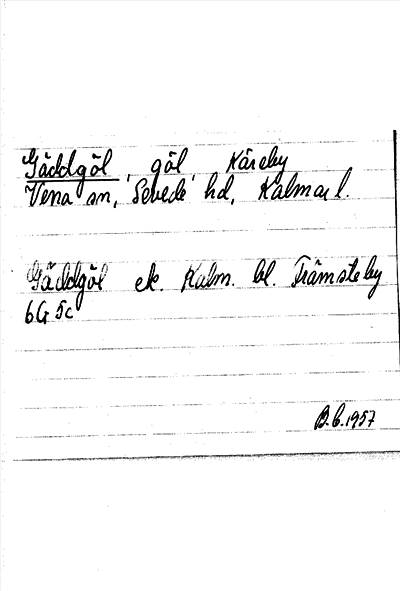 Gäddgöl, göl, Käreby
Vena sn, Sevede hd, Kalmar l.
Gäddgöl ek. Kalm. bl. Främsteby
6G 5c
B.E.1957